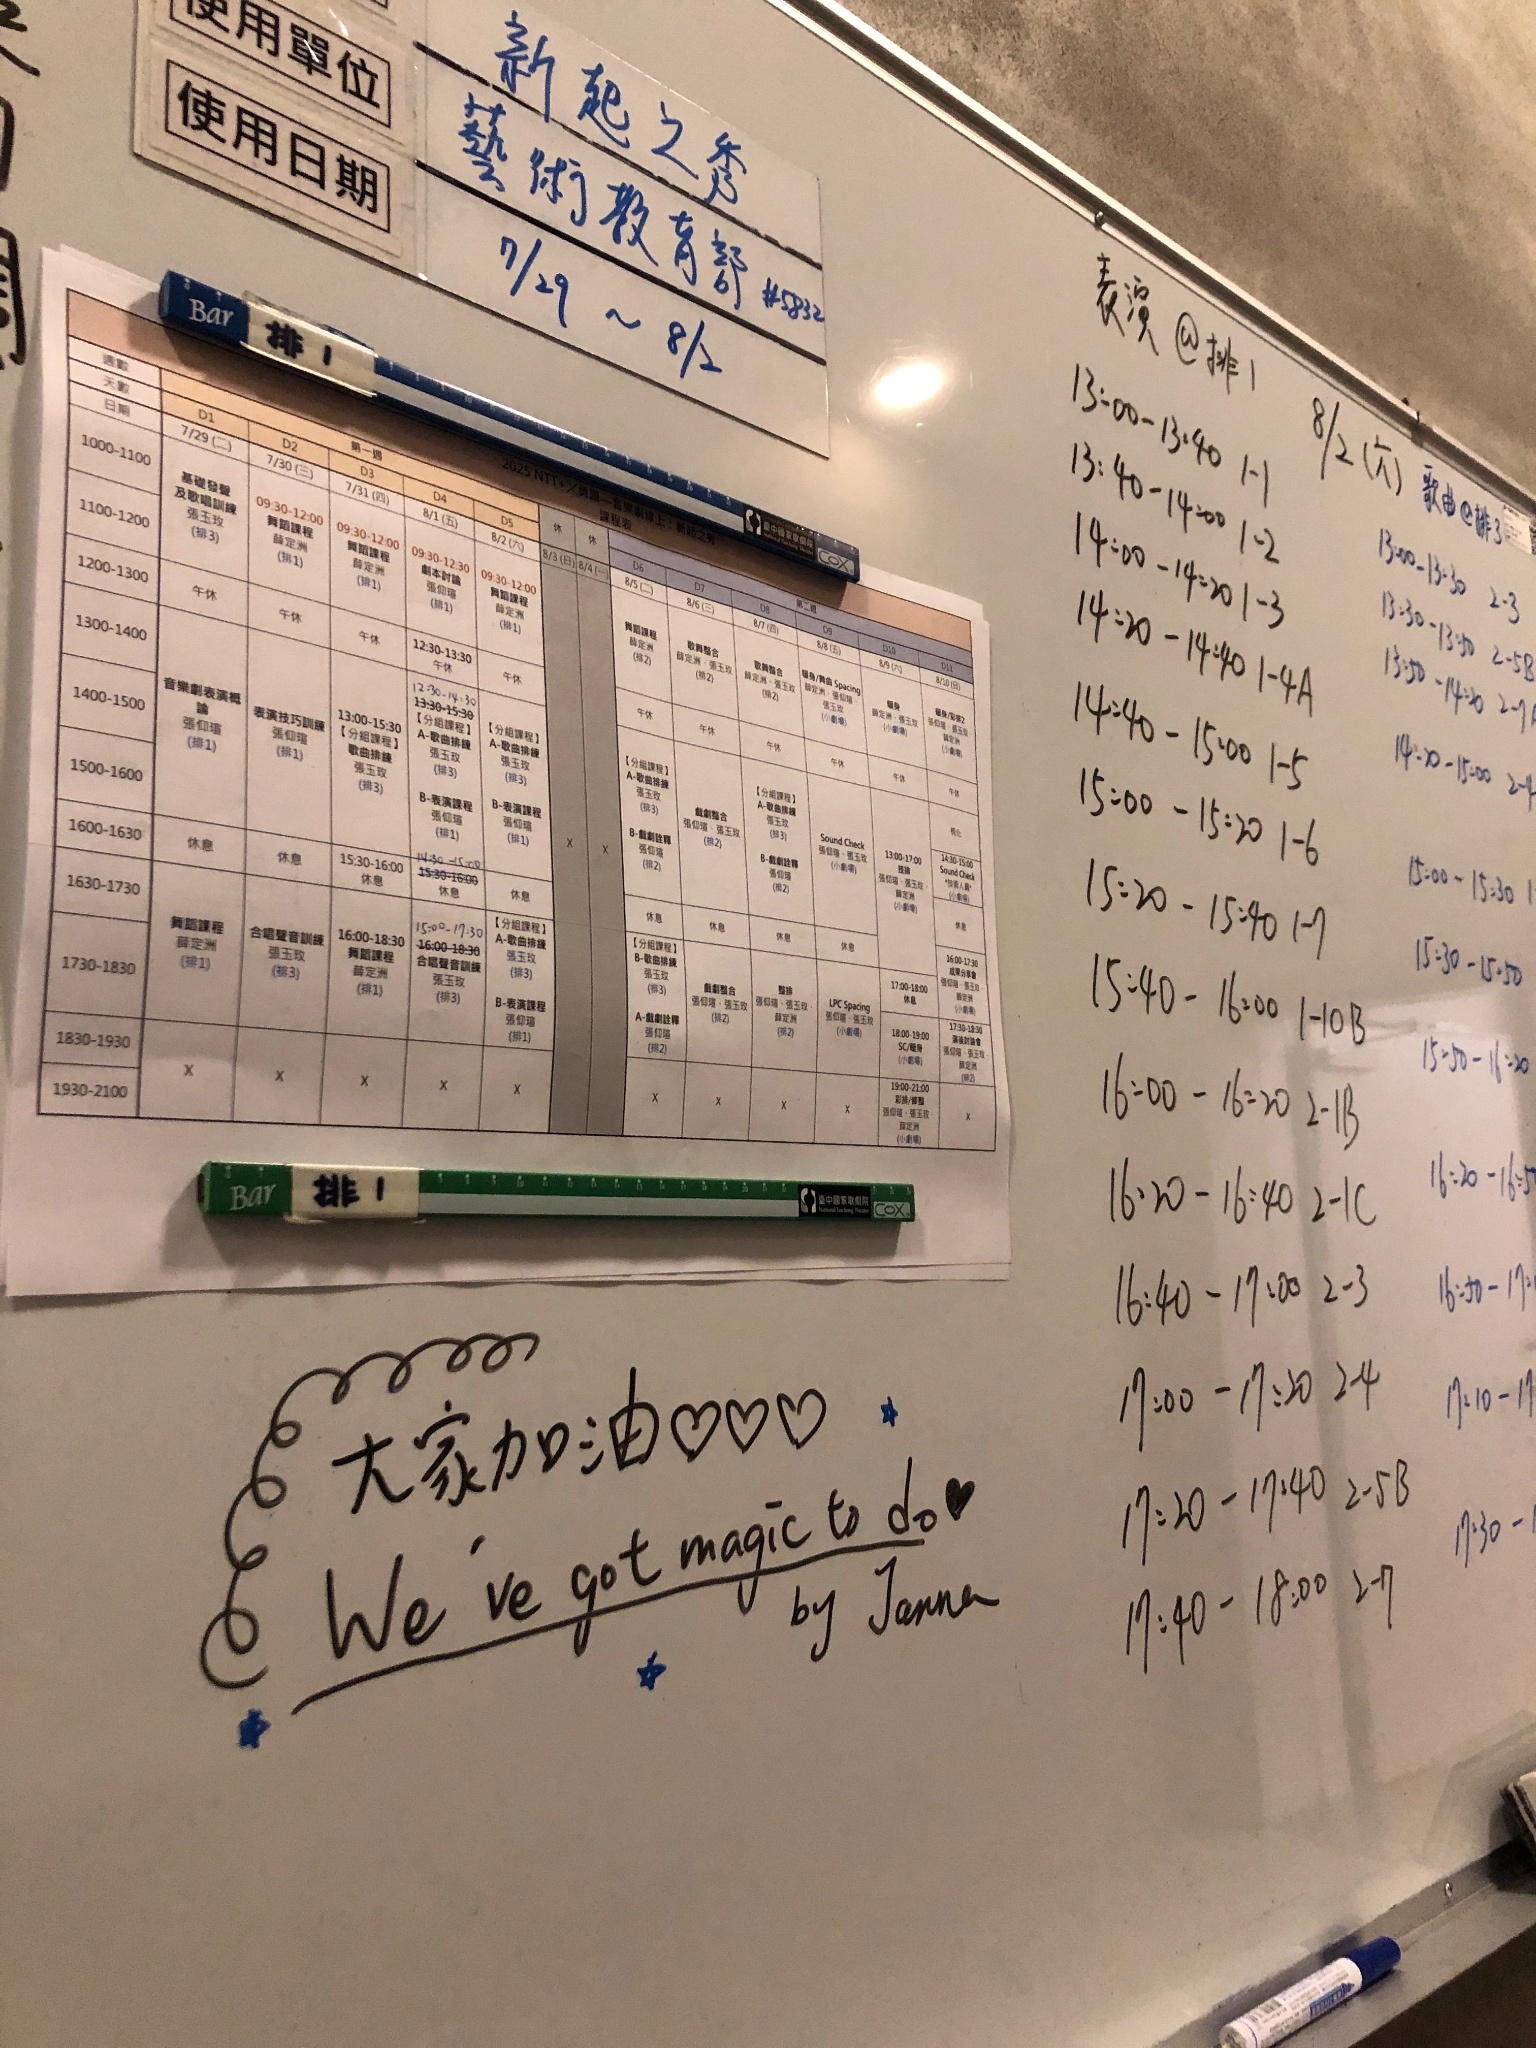 使用單位
使用日期
新起之秀
藝術教育部 #5832
7/29 ~ 8/2
Bar 排1
臺中國家歌劇院
National Taichung Theater
COX
課程表
週數 第一週 第二週
天數 D1 D2 D3 D4 D5 休 休 D6 D7 D8 D9 D10 D11
日期 7/29 (二) 7/30 (三) 7/31 (四) 8/1 (五) 8/2 (六) 8/3 (日) 8/4 (一) 8/5 (二) 8/6 (三) 8/7 (四) 8/8 (五) 8/9 (六) 8/10 (日)
1000-1100
1100-1200
1200-1300
1300-1400
1400-1500
1500-1600
1600-1630
1630-1730
1730-1830
1830-1930
1930-2100
基礎發聲
及歌唱訓練
張玉玫
(排3)
午休
音樂劇表演概
論
張仰瑄
(排1)
休息
舞蹈課程
薛定洲
(排1)
X
09:30-12:00
舞蹈課程
薛定洲
(排1)
午休
表演技巧訓練
張仰瑄
(排1)
休息
合唱聲音訓練
張玉玫
(排3)
X
09:30-12:00
舞蹈課程
薛定洲
(排1)
午休
13:00-15:30
【分組課程】
歌曲排練
張玉玫
(排3)
15:30-16:00
休息
16:00-18:30
舞蹈課程
薛定洲
(排1)
X
09:30-12:30
劇本討論
張仰瑄
(排1)
12:30-13:30
午休
12:30-14:30
13:30-15:30
【分組課程】
A-歌曲排練
張玉玫
(排3)
B-表演課程
張仰瑄
(排1)
14:30-15:00
15:30-16:00
休息
15:00-17:30
16:00-18:30
合唱聲音訓練
張玉玫
(排3)
X
09:30-12:00
舞蹈課程
薛定洲
(排1)
午休
【分組課程】
A-歌曲排練
張玉玫
(排3)
B-表演課程
張仰瑄
(排1)
休息
【分組課程】
A-歌曲排練
張玉玫
(排3)
B-表演課程
張仰瑄
(排1)
X
X
X
舞蹈課程
薛定洲
(排2)
午休
【分組課程】
A-歌曲排練
張玉玫
(排3)
B-戲劇詮釋
張仰瑄
(排2)
休息
【分組課程】
B-歌曲排練
張玉玫
(排3)
A-戲劇詮釋
張仰瑄
(排2)
X
歌舞整合
薛定洲、張玉玫
(排2)
午休
戲劇整合
張仰瑄、張玉玫
(排2)
休息
戲劇整合
張仰瑄、張玉玫
(排2)
X
歌舞整合
薛定洲、張玉玫
(排2)
午休
【分組課程】
A-歌曲排練
張玉玫
(排3)
B-戲劇詮釋
張仰瑄
(排2)
休息
整排
張仰瑄、張玉玫、
薛定洲
(排2)
X
暖身/舞曲 Spacing
薛定洲、張仰瑄、
張玉玫
(小劇場)
午休
Sound Check
張仰瑄、張玉玫
(小劇場)
休息
LPC Spacing
張仰瑄、張玉玫
(小劇場)
X
暖身
薛定洲、張玉玫
(小劇場)
午休
13:00-17:00
張仰瑄、張玉玫、
薛定洲
(小劇場)
17:00-18:00
休息
18:00-19:00
SC/暖身
(小劇場)
19:00-21:00
張仰瑄、張玉玫、
薛定洲
(小劇場)
暖身/彩排2
張仰瑄、張玉玫、
薛定洲
(小劇場)
午休
梳化
14:30-15:00
Sound Check
*技術人員*
(小劇場)
休息
16:00-17:30
成果分享會
張仰瑄、張玉玫、
薛定洲
(小劇場)
17:30-18:30
演後討論會
張仰瑄、張玉玫、
薛定洲
(排2)
X
Bar 排1
臺中國家歌劇院
National Taichung Theater
COX
大家加油♡♡♡
We've got magic to do♥
by Janna
8/2 (六)
表演@排1
13:00-13:40 1-1
13:40-14:00 1-2
14:00-14:20 1-3
14:20-14:40 1-4A
14:40-15:00 1-5
15:00-15:20 1-6
15:20-15:40 1-7
15:40-16:00 1-10B
16:00-16:20 2-1B
16:20-16:40 2-1C
16:40-17:00 2-3
17:00-17:20 2-4
17:20-17:40 2-5B
17:40-18:00 2-7
歌曲@排3
13:00-13:30 2-3
13:30-13:50 2-5B
13:50-14:20 2-7A
14:20-15:00
15:00-15:30
15:30-15:50
15:50-16:20
16:20-16:50
16:50-17:
17:10-17
17:30-1